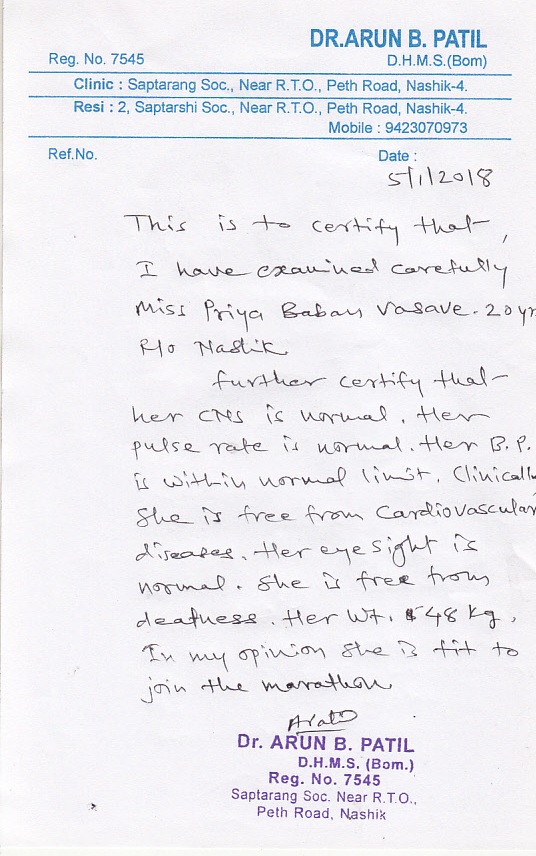 DR.ARUN B. PATIL
Reg. No. 7545 D.H.M.S.(Bom)
Clinic : Saptarang Soc., Near R.T.O., Peth Road, Nashik-4.
Resi : 2, Saptarshi Soc., Near R.T.O., Peth Road, Nashik-4.
Mobile : 9423070973
Ref.No. Date :
5/1/2018
This is to certify that,
I have examined carefully
Miss Priya Baban Vasave. 20 yr
R/o Nashik
further certify that
her CNS is normal. Her
pulse rate is normal. Her B.P.
is within normal limit. Clinically
She is free from Cardiovascular
diseases. Her eye sight is
normal. She is free from
deafness. Her Wt. 48 kg.
In my opinion She is fit to
join the marathon
Dr. ARUN B. PATIL
D.H.M.S. (Bom.)
Reg. No. 7545
Saptarang Soc. Near R.T.O.,
Peth Road, Nashik